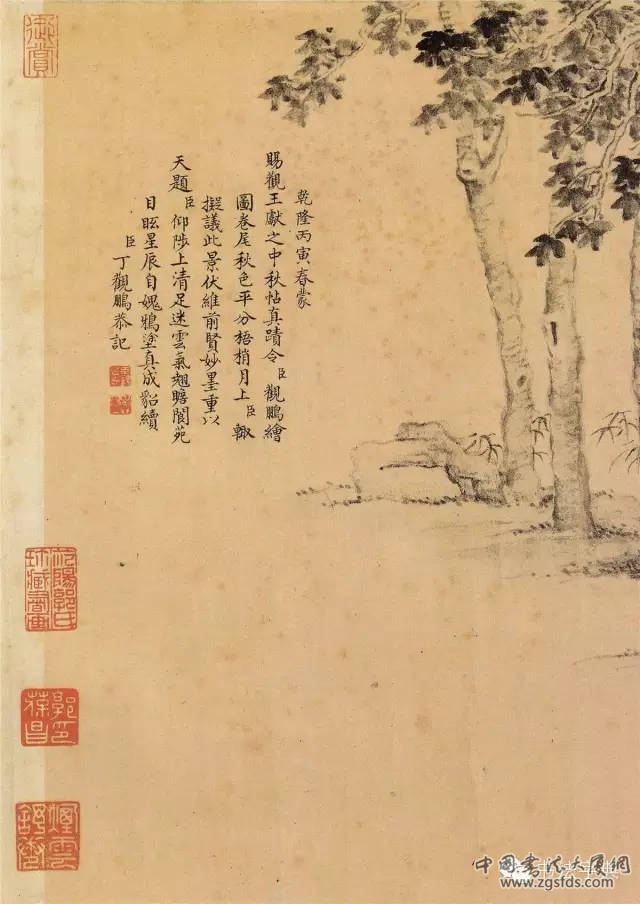 御賞
乾隆丙寅春蒙
賜觀王獻之中秋帖真蹟令臣觀鵬繪
圖卷尾秋色平分梧梢月上臣輙
擬議此景伏維前賢妙墨重以
天題臣仰陟上清足迷雲氣翹瞻閬苑
目眩星辰自媿鴉塗真成貂續
臣丁觀鵬恭記
郭印
葆昌
中國書法大厦網
www.zgsfds.com